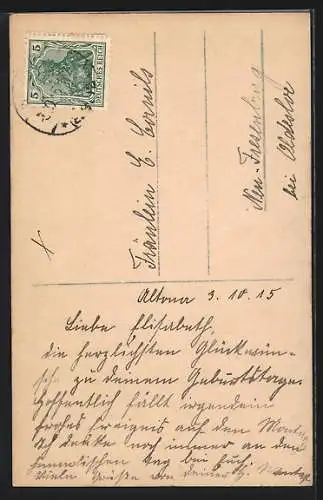 5 5
DEUTSCHES REICH
Fräulein E. Cornils
Neu-Fresenburg
bei Oldesloe
Altona 3.10.15
Liebe Elisabeth,
die herzlichsten Glückwün-
sche zu deinem Geburtstage.
Hoffentlich fällt irgendein
frohes Ereignis auf den Montag.
Ich denke noch immer an den
Tag bei Euch.
Viele Grüße von deiner